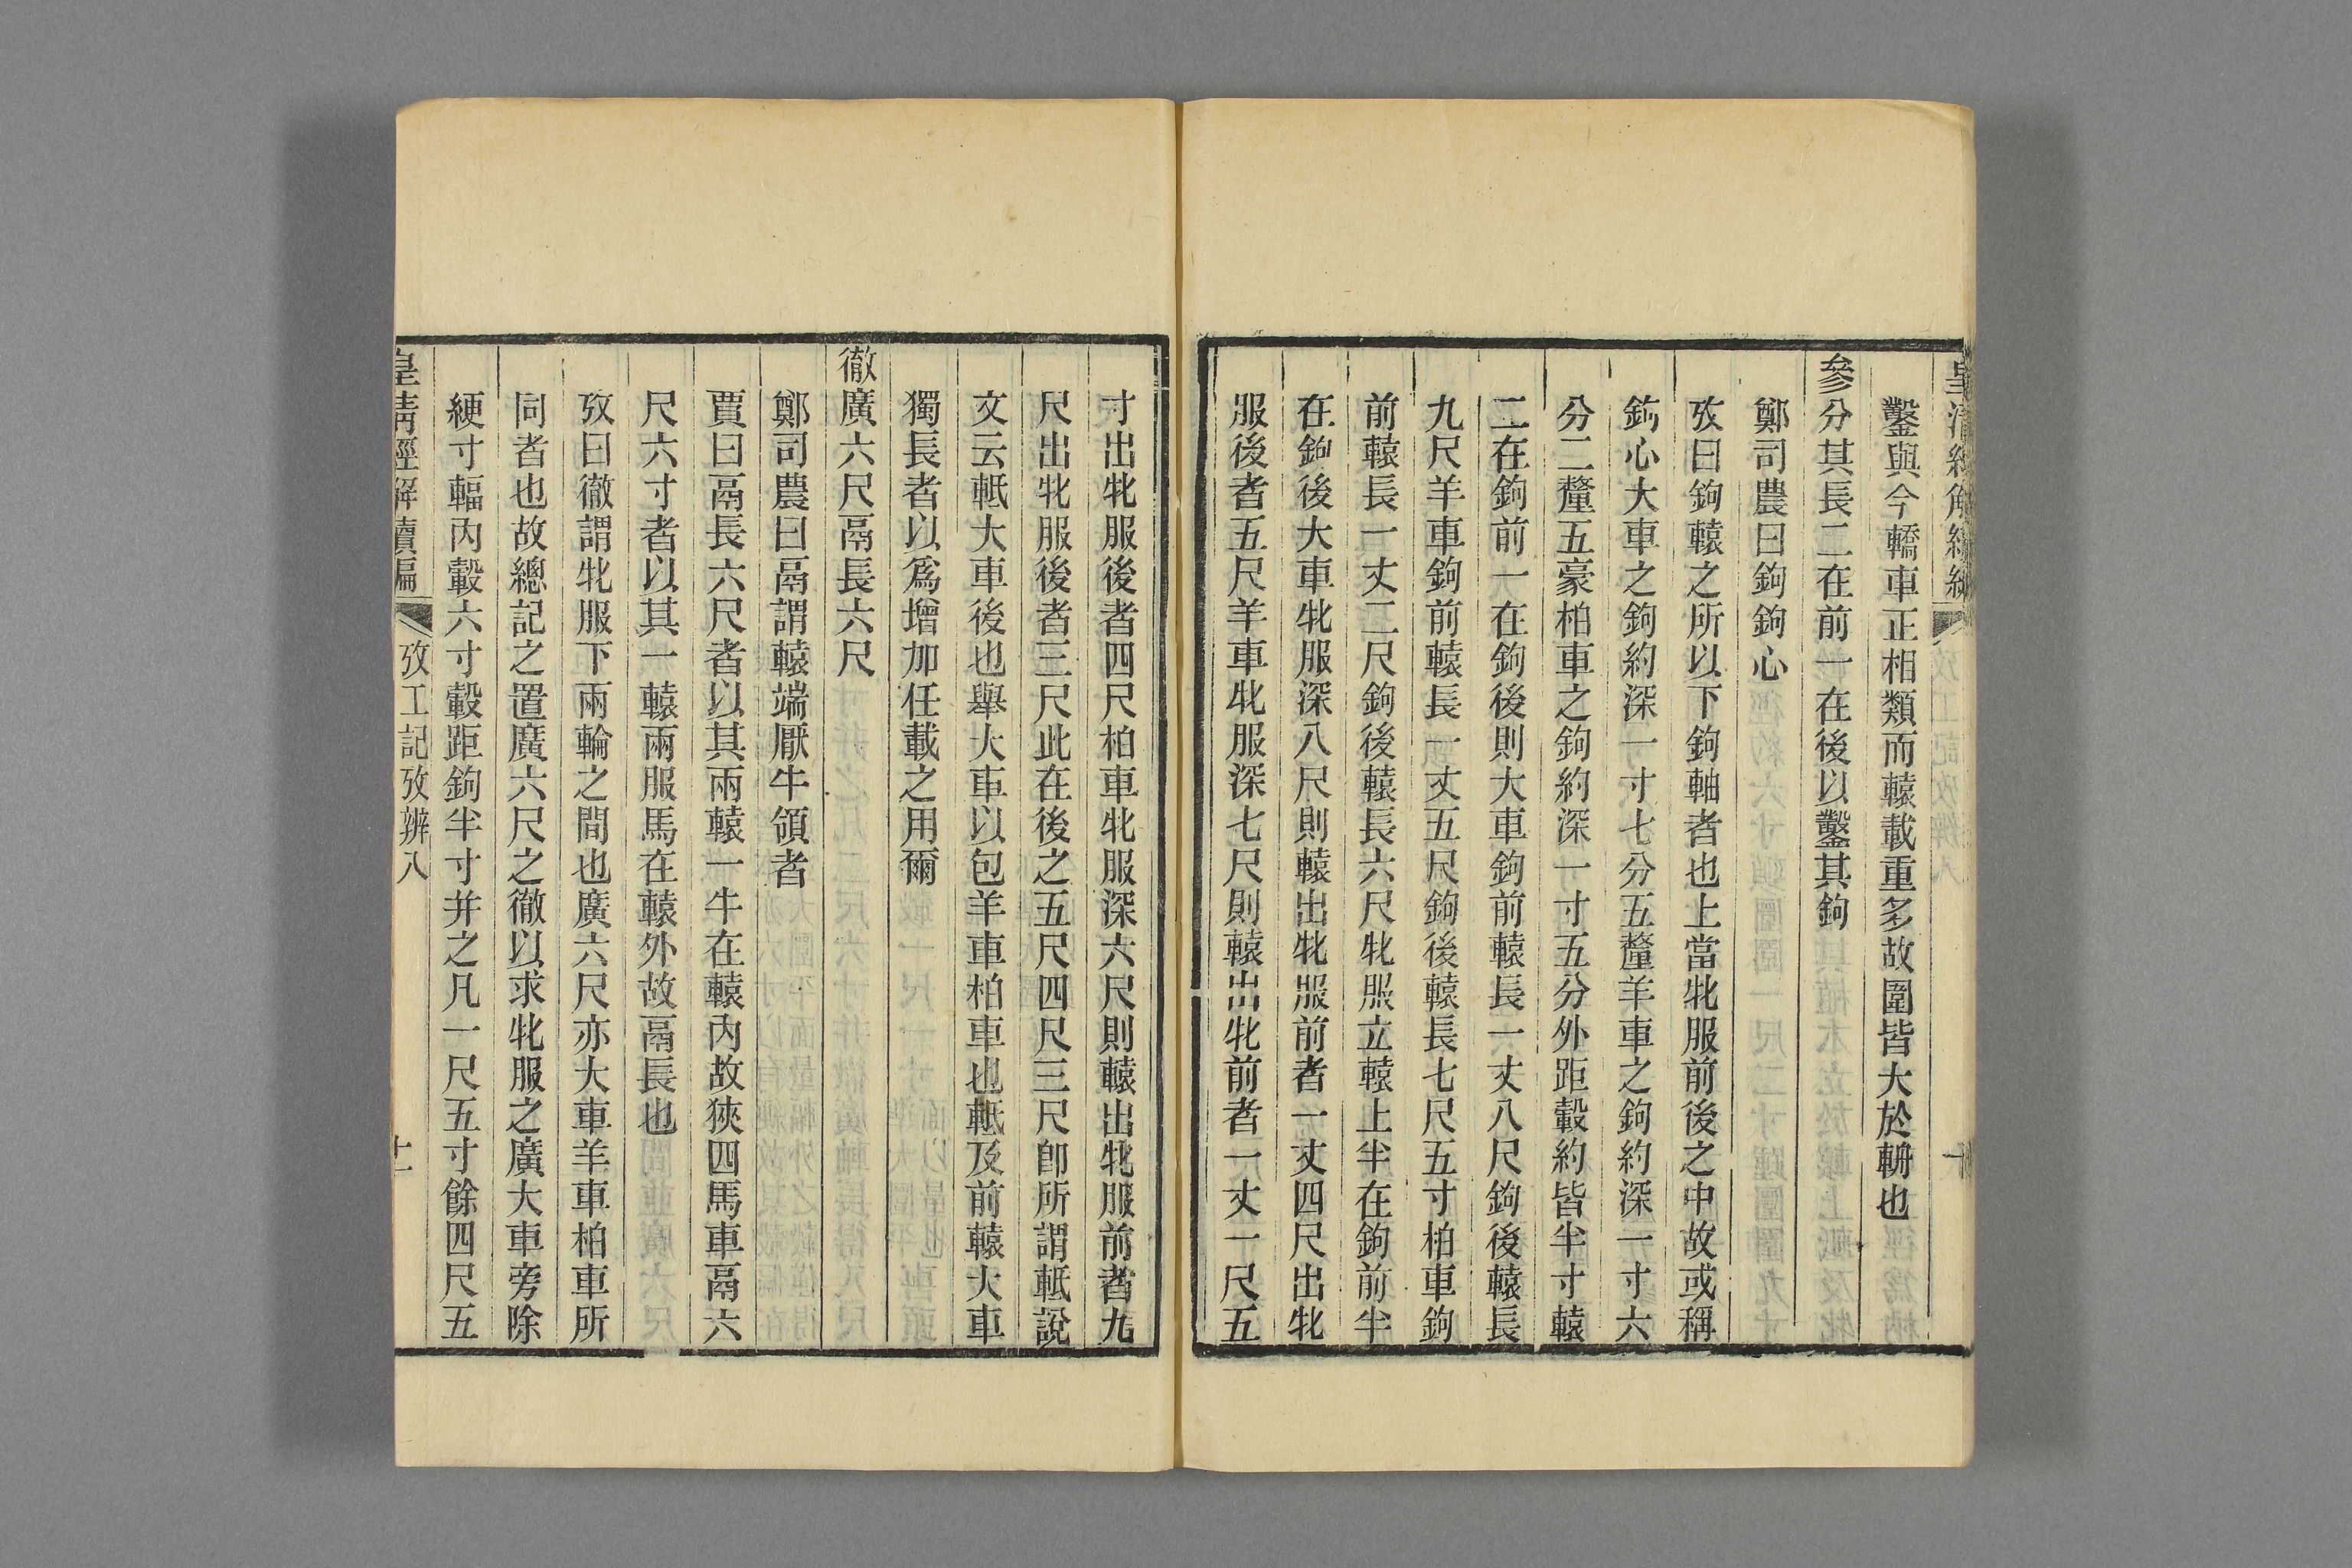 鑿與今轎車正相類而轅載重多故圍皆大於輈也
參分其長二在前一在後以鑿其鉤
鄭司農曰鉤鉤心
攷曰鉤轅之所以下鉤軸者也上當牝服前後之中故或稱
鉤心大車之鉤約深一寸七分五釐羊車之鉤約深一寸六
分二釐五豪柏車之鉤約深一寸五分外距轂約皆半寸轅
二在鉤前一在鉤後則大車鉤前轅長一丈八尺鉤後轅長
九尺羊車鉤前轅長一丈五尺鉤後轅長七尺五寸柏車鉤
前轅長一丈二尺鉤後轅長六尺牝服立轅上半在鉤前半
在鉤後大車牝服深八尺則轅出牝服前者一丈四尺出牝
服後者五尺羊車牝服深七尺則轅出牝前者一丈一尺五
寸出牝服後者四尺柏車牝服深六尺則轅出牝服前者九
尺出牝服後者三尺此在後之五尺四尺三尺卽所謂軧說
文云軧大車後也舉大車以包羊車柏車也軧及前轅大車
獨長者以爲增加任載之用爾
徹廣六尺鬲長六尺
鄭司農曰鬲謂轅端厭牛領者
賈曰鬲長六尺者以其兩轅一牛在轅內故狹四馬車鬲六
尺六寸者以其一轅兩服馬在轅外故鬲長也
攷曰徹謂牝服下兩輪之間也廣六尺亦大車羊車柏車所
同者也故總記之置廣六尺之徹以求牝服之廣大車旁除
綆寸輻內轂六寸轂距鉤半寸并之凡一尺五寸餘四尺五
皇淸經解續編 攷工記攷辨八 十一